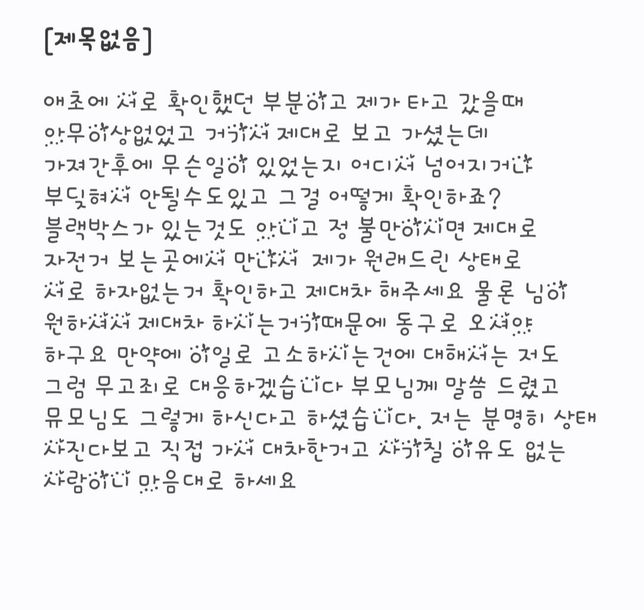 [제목없음]
애초에 서로 확인했던 부분이고 제가 타고 갔을때
아무이상없었고 거기서 제대로 보고 가셨는데
가져간후에 무슨일이 있었는지 어디서 넘어지거나
부딪혀서 안될수도있고 그걸 어떻게 확인하죠?
블랙박스가 있는것도 아니고 정 불만이시면 제대로
자전거 보는곳에서 만나서 제가 원래드린 상태로
서로 하자없는거 확인하고 제대차 해주세요 물론 님이
원하셔서 제대차 하시는거기때문에 동구로 오셔야
하구요 만약에 이일로 고소하시는건에 대해서는 저도
그럼 무고죄로 대응하겠습니다 부모님께 말씀 드렸고
뮤모님도 그렇게 하신다고 하셨습니다. 저는 분명히 상태
사진다보고 직접 가서 대차한거고 사기칠 이유도 없는
사람이니 맘음대로 하세요